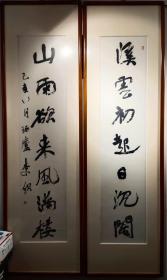 溪雲初起日沉閣
山雨欲来風滿樓
己亥八月